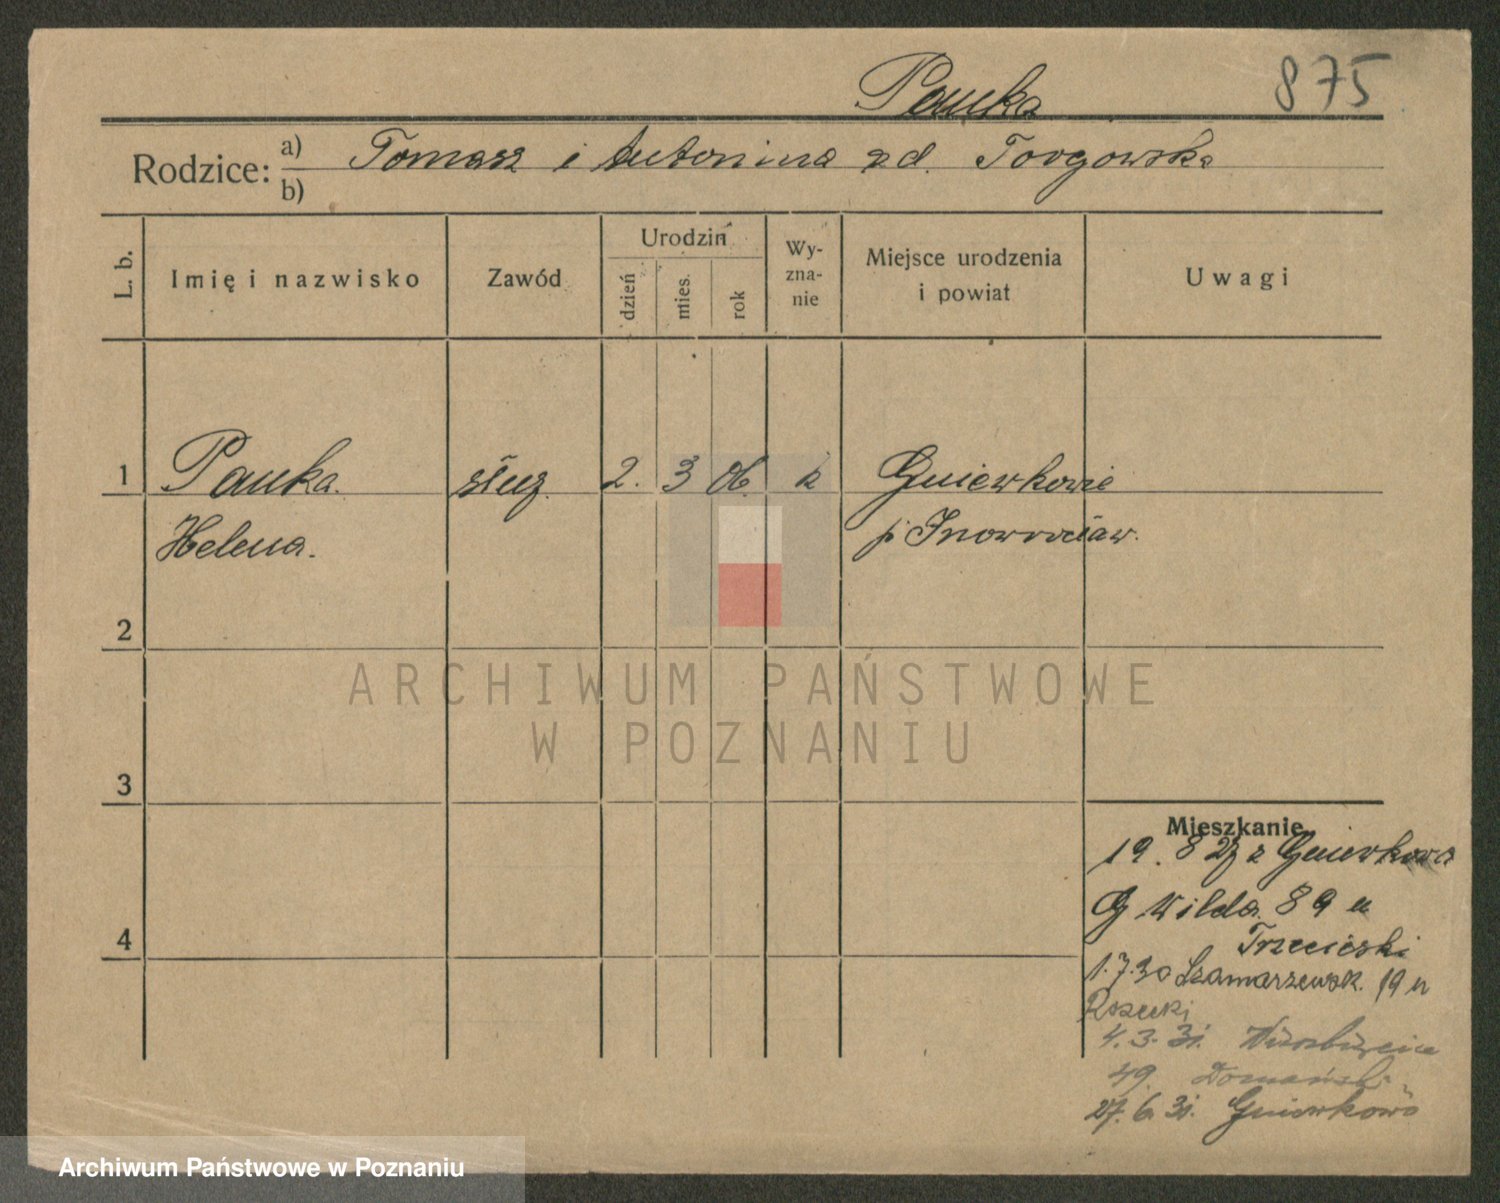 Pauka 875
Rodzice: a) Tomasz i Antonina zd. Torgowska
b)
L. b. Imię i nazwisko Zawód Urodzin dzień mies. rok Wy-zna-nie Miejsce urodzenia i powiat Uwagi
1 Pauka. służ. 2. 3 06. k Gniewkowie
Helena. p. Inowrocław.
2
3
4
Mieszkanie
19. 8 29 z Gniewkowa
G Wilda 89 u
Trzecieski
1.7.30 Szamarzewsk. 19 u
4.3.31. Wierzbięcice
49 Domański
27.6.31. Gniewkowo
ARCHIWUM PAŃSTWOWE
W POZNANIU
Archiwum Państwowe w Poznaniu